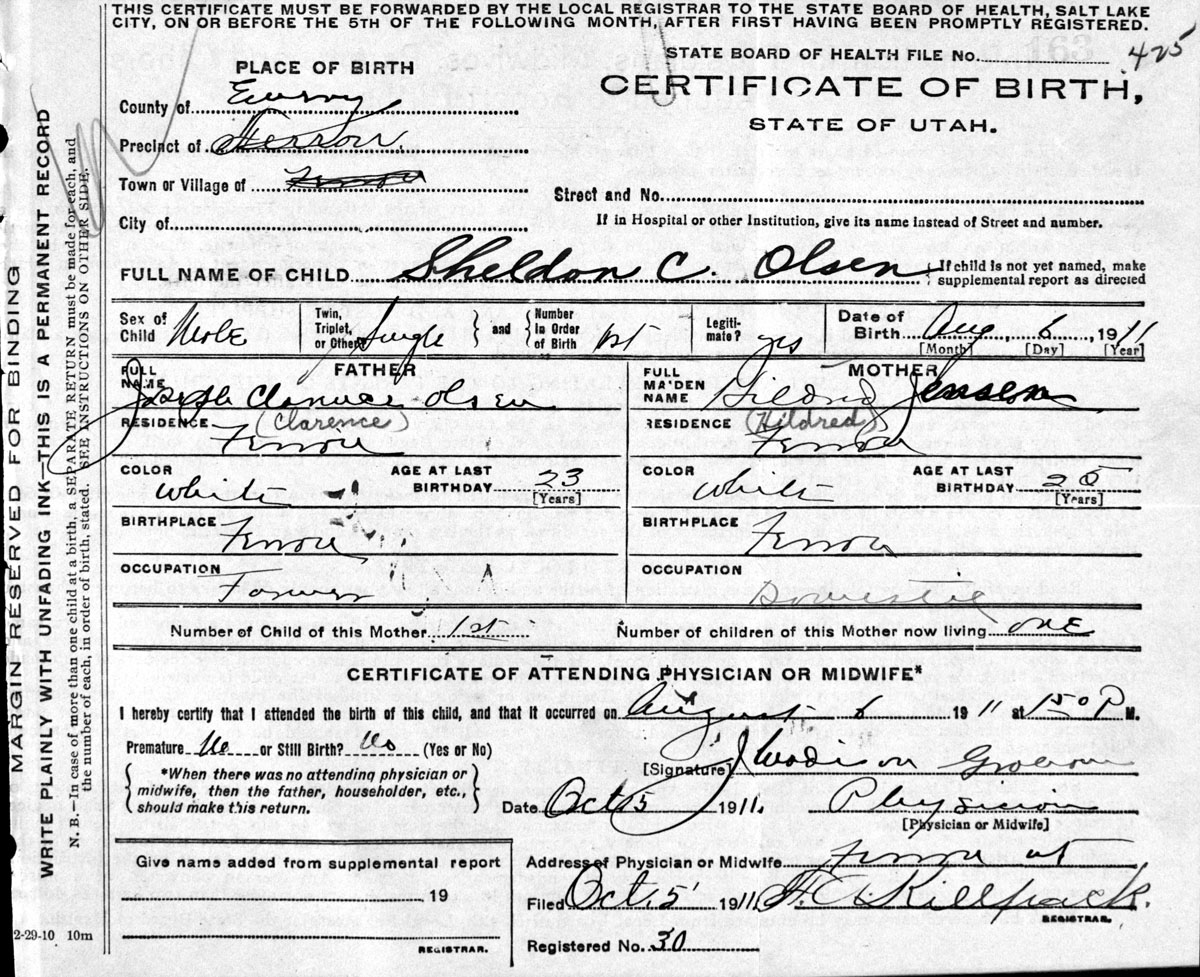 THIS CERTIFICATE MUST BE FORWARDED BY THE LOCAL REGISTRAR TO THE STATE BOARD OF HEALTH, SALT LAKE
CITY, ON OR BEFORE THE 5TH OF THE FOLLOWING MONTH, AFTER FIRST HAVING BEEN PROMPTLY REGISTERED.
STATE BOARD OF HEALTH FILE No. 425
CERTIFICATE OF BIRTH,
STATE OF UTAH.
PLACE OF BIRTH
County of Emery
Precinct of Ferron
Town or Village of Ferron
Street and No.
City of
If in Hospital or other Institution, give its name instead of Street and number.
FULL NAME OF CHILD Sheldon C. Olsen { If child is not yet named, make
supplemental report as directed
Sex of Child Male
Twin, Triplet, or Other? Single and { Number in Order of Birth 1st
Legitimate? yes
Date of Birth Aug, 6, 1911
[Month] [Day] [Year]
FATHER
FULL NAME Joseph Clarence Olsen
RESIDENCE (Clarence)
Ferron
COLOR White
AGE AT LAST BIRTHDAY 23
[Years]
BIRTHPLACE
Ferron
OCCUPATION
Farmer
MOTHER
FULL MAIDEN NAME Hildred Jensen
RESIDENCE (Hildred)
Ferron
COLOR White
AGE AT LAST BIRTHDAY 20
[Years]
BIRTHPLACE
Ferron
OCCUPATION
Domestic
Number of Child of this Mother 1st
Number of children of this Mother now living ONE
CERTIFICATE OF ATTENDING PHYSICIAN OR MIDWIFE*
I hereby certify that I attended the birth of this child, and that it occurred on August 6 1911 at 150 P M.
Premature No or Still Birth? No (Yes or No)
{ *When there was no attending physician or
midwife, then the father, householder, etc.,
should make this return. }
[Signature]
Date Oct 5 1911. Physician
[Physician or Midwife]
Address of Physician or Midwife Ferron ut
Filed Oct. 5 1911 Killpack.
REGISTRAR.
Registered No. 30
Give name added from supplemental report
19
REGISTRAR.
2-29-10 10m
MARGIN RESERVED FOR BINDING
WRITE PLAINLY WITH UNFADING INK—THIS IS A PERMANENT RECORD
N. B.—In case of more than one child at a birth, a SEPARATE RETURN must be made for each, and
the number of each, in order of birth, stated. SEE INSTRUCTIONS ON OTHER SIDE.